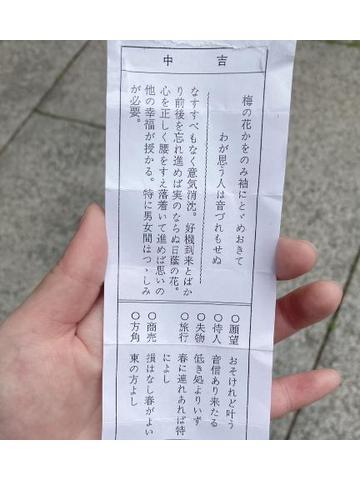 中吉
梅の花かをのみ袖にとゞめおきて
わが思う人は音づれもせぬ
なすすべもなく意気消沈。好機到来とばか
り前後を忘れ進めば実のならぬ日蔭の花。
心を正しく腰をすえ落着いて進めば思いの
他の幸福が授かる。特に男女間はつゝしみ
が必要。
○願望 おそけれど叶う
○待人 音信あり来たる
○失物 低き処よりいず
○旅行 春に連れあれば特
によし
○商売 損はなし春がよい
○方角 東の方よし